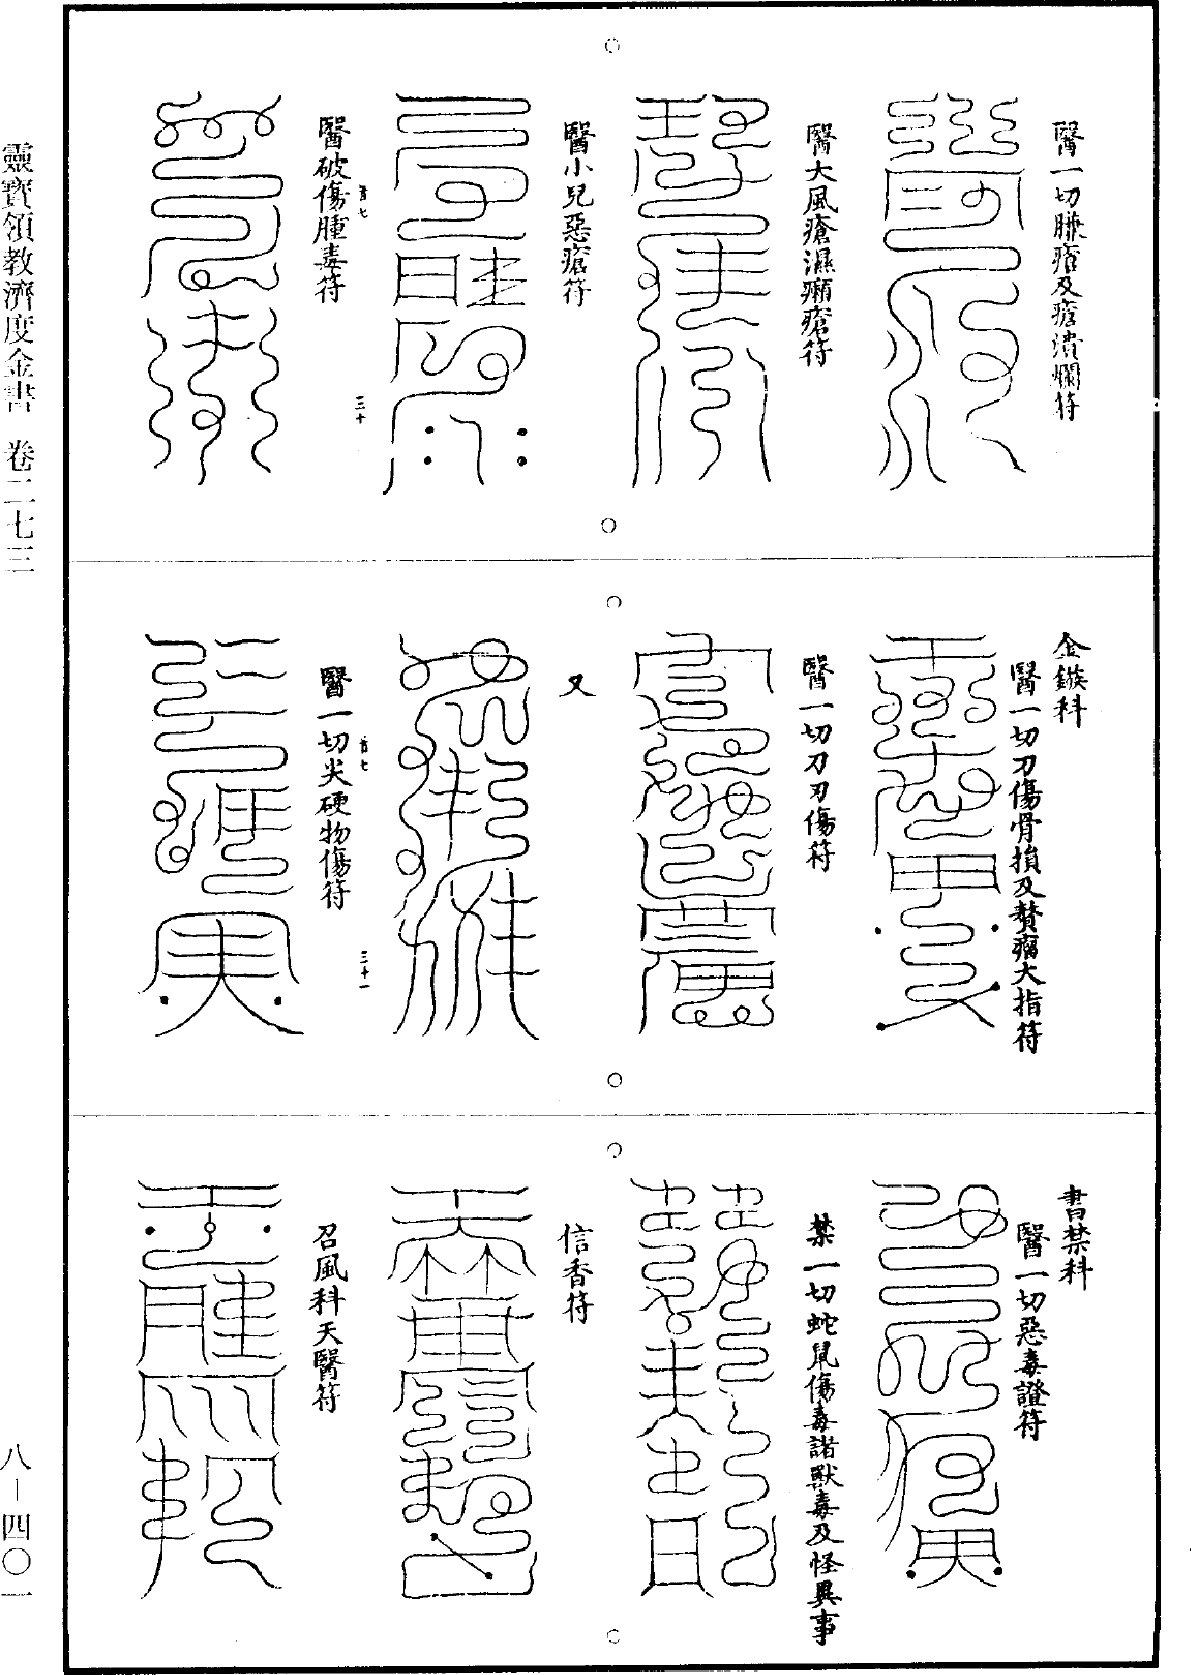 醫一切臁瘡及瘡潰爛符
醫大風瘡濕癩瘡符
醫小兒惡瘡符
首七
三十
醫破傷腫毒符
金鏃科
醫一切刀傷骨損及贅瘤大指符
醫一切刀刃傷符
又
首七
三十一
醫一切尖硬物傷符
書禁科
醫一切惡毒證符
禁一切蛇鼠傷毒諸獸毒及怪異事
信香符
召風科天醫符
靈寶領教濟度金書 卷二七三
八－四〇一